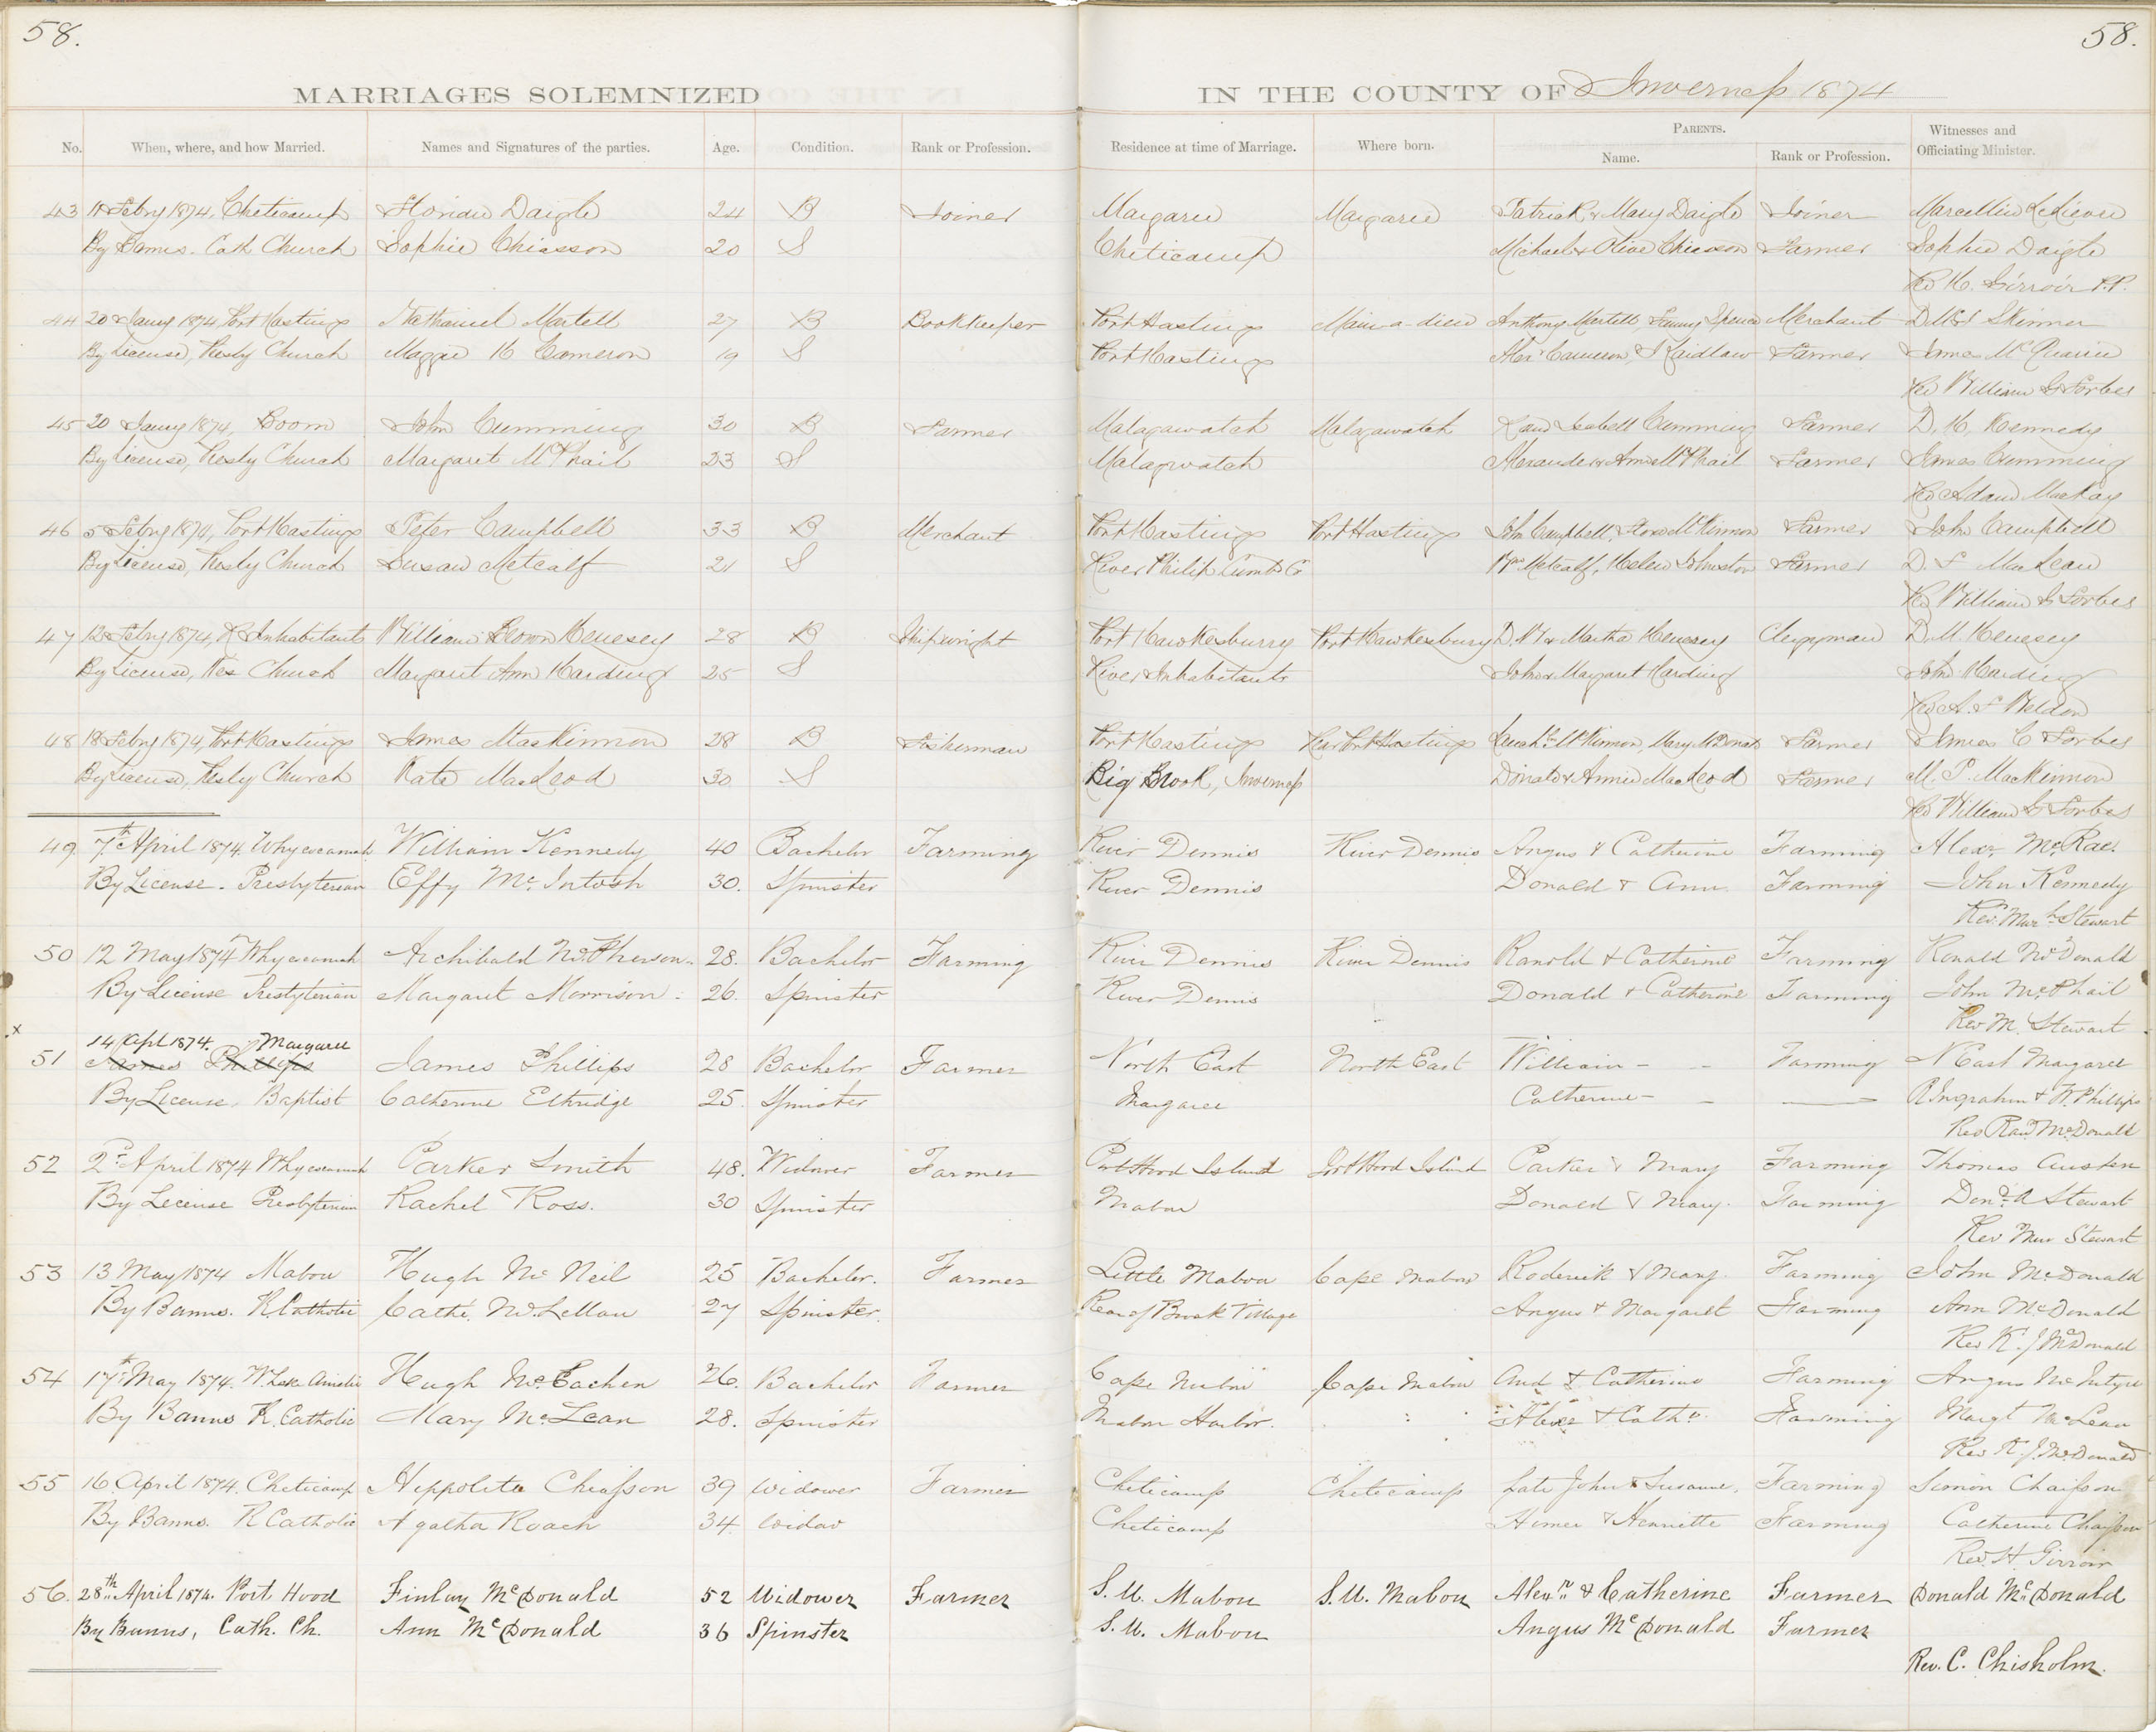 58.
58.
MARRIAGES SOLEMNIZED IN THE COUNTY OF Inverness 1874
No. When, where, and how Married. Names and Signatures of the parties. Age. Condition. Rank or Profession. Residence at time of Marriage. Where born. PARENTS. Name. Rank or Profession. Witnesses and Officiating Minister.
43 Febry 1874, Cheticamp Daigle 24 B Joiner Margaree Margaree Patrick & Mary Daigle Joiner Marcellin
By Banns. Cath Church Sophie Chiasson 20 S Cheticamp Michael & Olive Chiasson Farmer Sophie Daigle
Rev H. Girroir P.P.
44 20 Jany 1874, Port Hastings Nathaniel Martell 27 B Bookkeeper Port Hastings Main-a-dieu Anthony Martell Fanny Spence Merchant Skinner
By License, Presby Church Maggie H Cameron 19 S Port Hastings Alexr Cameron, Laidlaw Farmer James McQuarrie
Rev William G Forbes
45 20 Jany 1874, Boom John Cumming 30 B Farmer Malagawatch Malagawatch and Isabell Cumming Farmer D. H. Kennedy
By License, Presby Church Margaret McPhail 23 S Malagwatch Alexander & Ann McPhail Farmer James Cumming
Rev Adam MacKay
46 5 Febry 1874, Port Hastings Peter Campbell 33 B Merchant Port Hastings Port Hastings John Campbell, McKinnon Farmer John Campbell
By License, Presby Church Susan Metcalf 21 S River Philip Cumbd Co Metcalf, Helen Johnston Farmer D. F MacLean
Rev William G Forbes
47 12 Febry 1874, R Inhabitants William Brown Henesey 28 B Shipwright Port Hawkesburry Port Hawkesbury & Martha Henesey Clergyman D. M. Henesey
By License, Wes Church Margaret Ann Harding 25 S River Inhabitants John & Margaret Harding John Harding
Rev A. F Weldon
48 18 Febry 1874, Port Hastings James MacKinnon 28 B Fisherman Port Hastings Rear Port Hastings McKinnon, Mary McDonald Farmer James C Forbes
By License, Presby Church Kate MacLeod 30 S Big Brook, Inverness Donald & Annie MacLeod Farmer M. P. MacKinnon
Rev William G Forbes
49. 7th April 1874. Whycocomah William Kennedy 40 Bachelor Farming River Dennis River Dennis Angus & Catherine Farming Alexr McRae
By License - Presbyterian Effy McIntosh 30. Spinster River Dennis Donald & Ann Farming John Kennedy
Rev Stewart
50 12 May 1874 Whycocomah Archibald McPherson 28. Bachelor Farming River Dennis River Dennis Ranold & Catherine Farming Ronald McDonald
By License Presbyterian Margaret Morrison 26. Spinster River Dennis Donald & Catherine Farming John McPhail
Rev M. Stewart
x
14 Apl 1874. Margaree
51 James Phillips James Phillips 28 Bachelor Farmer North East North East William - - Farming N East Margaree
By License, Baptist Catherine Ethridge 25. Spinster Margaree Catherine - - R Ingraham & W. Phillips
Rev McDonald
52 2d April 1874 Whycocomah Parker Smith 48. Widower Farmer Port Hood Island Port Hood Island Parker & Mary Farming Thomas Austen
By License Presbyterian Rachel Ross. 30 Spinster Mabou Donald & Mary. Farming Don'd A Stewart
Rev Mur Stewart
53 13 May 1874 Mabou Hugh McNeil 25 Bachelor. Farmer Little Mabou Cape Mabou Roderick & Mary Farming John McDonald
By Banns. R. Catholic Cathe. McLellan 27 Spinster. Rear of Brook Village Angus & Margaret Farming Ann McDonald
Rev K. J McDonald
54 17th May 1874. W. Lake Ainslie Hugh McEachen 26. Bachelor Farmer Cape Mabou Cape Mabou And & Catherine Farming Angus McIntyre
By Banns R. Catholic Mary McLean 28. Spinster Mabou Harbor. Alexr & Cathe. Farming Margt McLean
Rev K. J. McDonald
55 16 April 1874. Cheticamp Hippolite Chiasson 39 Widower Farmer Cheticamp Cheticamp Late John & Susanne, Farming Simon Chaisson
By Banns. R Catholic Agatha Roach 34. Widow Cheticamp Aimee & Henriette Farming Catherine Chaisson
Rev. H Girroir
56. 28th April 1874. Port Hood Finlay McDonald 52 Widower Farmer S. W. Mabou S. W. Mabou Alexr & Catherine Farmer Donald McDonald
By Banns, Cath. Ch. Ann McDonald 36 Spinster S. W. Mabou Angus McDonald Farmer
Rev. C. Chisholm.